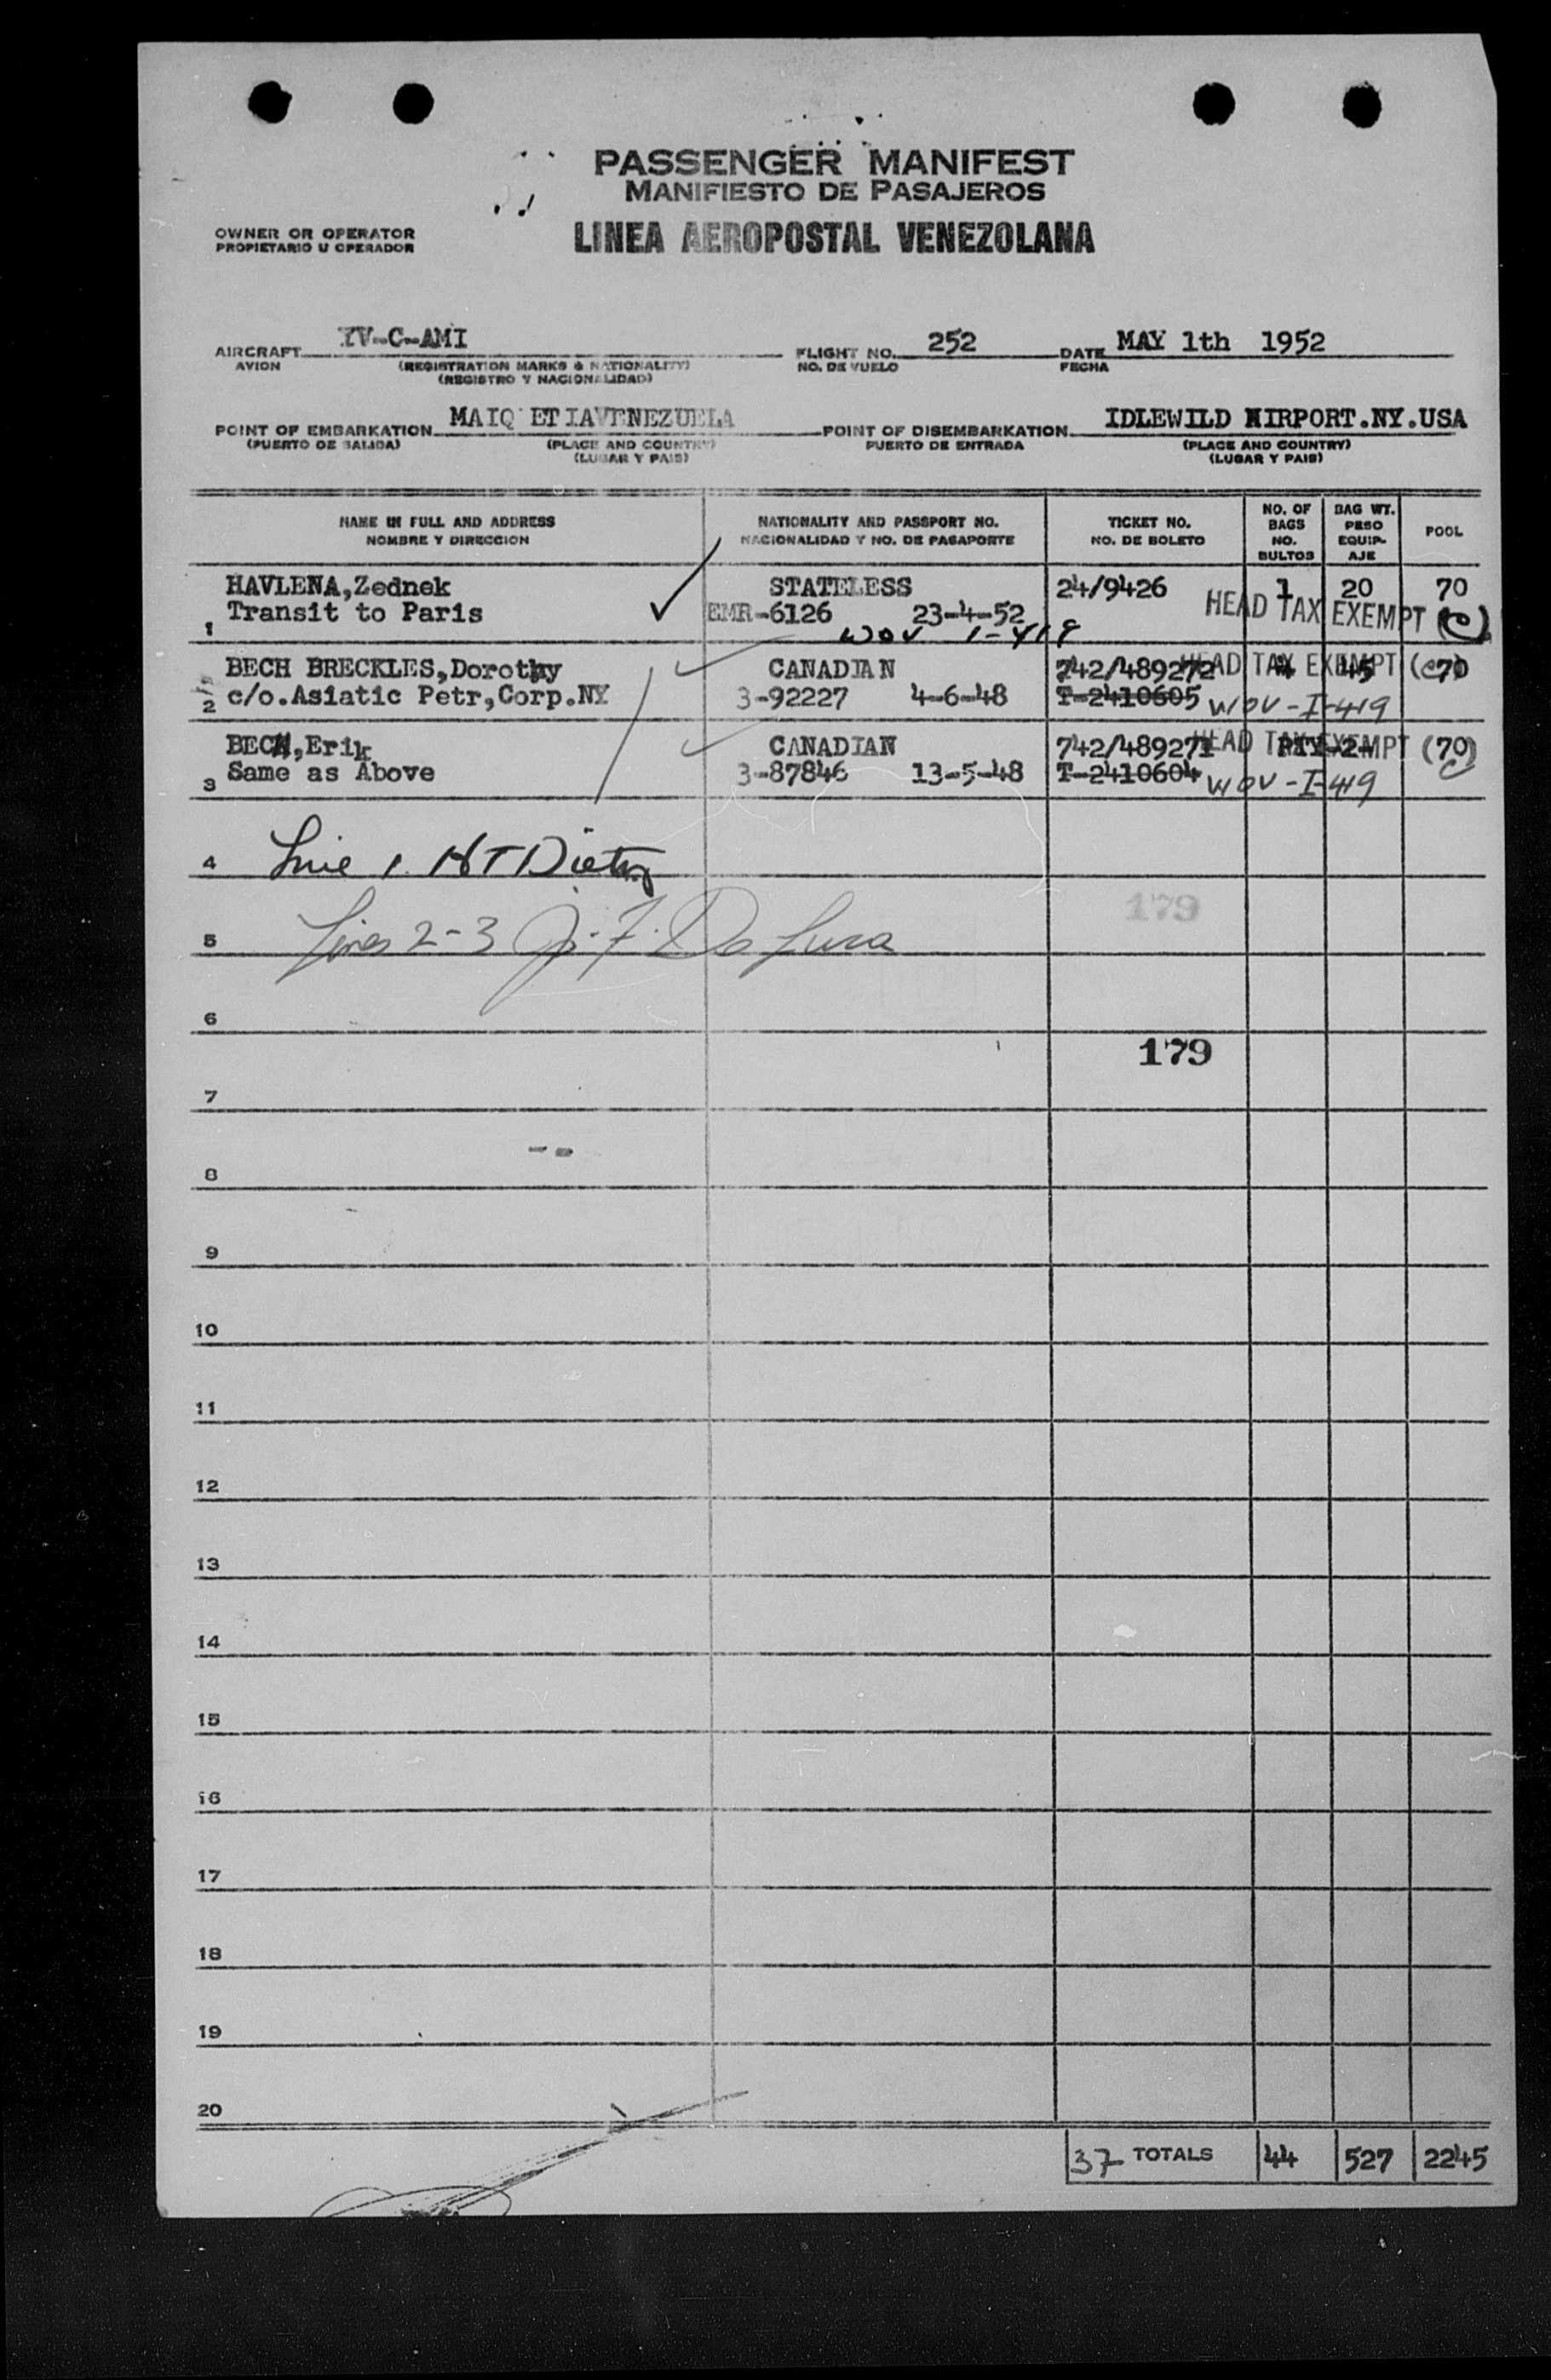 PASSENGER MANIFEST
MANIFIESTO DE PASAJEROS
OWNER OR OPERATOR
PROPIETARIO U OPERADOR
LINEA AEROPOSTAL VENEZOLANA
AIRCRAFT YV-C-AMI FLIGHT NO. 252 DATE MAY 1th 1952
AVION (REGISTRATION MARKS & NATIONALITY) NO. DE VUELO FECHA
(REGISTRO Y NACIONALIDAD)
POINT OF EMBARKATION MAIQ ETIA VENEZUELA POINT OF DISEMBARKATION IDLEWILD AIRPORT.NY.USA
(PUERTO DE SALIDA) (PLACE AND COUNTRY) PUERTO DE ENTRADA (PLACE AND COUNTRY)
(LUGAR Y PAIS) (LUGAR Y PAIS)
NAME IN FULL AND ADDRESS
NOMBRE Y DIRECCION
NATIONALITY AND PASSPORT NO.
NACIONALIDAD Y NO. DE PASAPORTE
TICKET NO.
NO. DE BOLETO
NO. OF
BAGS
NO.
BULTOS
BAG WT.
PESO
EQUIP-
AJE
POOL
HAVLENA,Zednek STATELESS 24/9426 1 20 70
1 Transit to Paris EMR-6126 23-4-52 HEAD TAX EXEMPT (C)
WOV I-419
BECH BRECKLES,Dorothy CANADIAN 742/489272 HEAD TAX EXEMPT 45 (70)
2 c/o.Asiatic Petr,Corp.NY 3-92227 4-6-48 T-2410605 WOV-I-419
BECH,Erik CANADIAN 742/489271 HEAD TAX EXEMPT (70)
3 Same as Above 3-87846 13-5-48 T-2410604 WOV-I-419
4 Line 1. HT Dietz
179
5 Lines 2-3 J. F. De Luca
6
179
7
8
9
10
11
12
13
14
15
16
17
18
19
20
37 TOTALS 44 527 2245